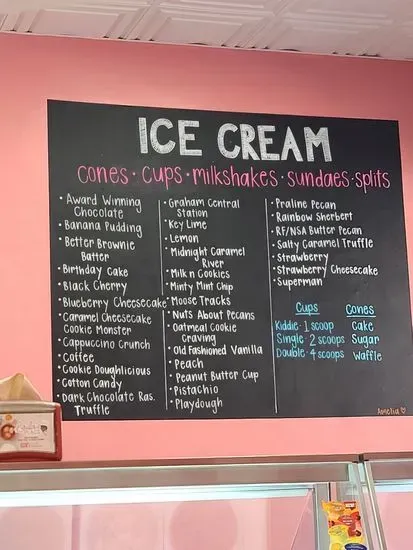 ICE CREAM
cones · cups · milkshakes · sundaes · splits
· Award Winning
Chocolate
· Banana Pudding
· Better Brownie
Batter
· Birthday Cake
· Black Cherry
· Blueberry Cheesecake
· Caramel Cheesecake
· Cookie Monster
· Cappuccino Crunch
· Coffee
· Cookie Doughlicious
· Cotton Candy
· Dark Chocolate Ras.
Truffle
· Graham Central
Station
· Key Lime
· Lemon
· Midnight Caramel
River
· Milk n Cookies
· Minty Mint Chip
· Moose Tracks
· Nuts About Pecans
· Oatmeal Cookie
Craving
· Old Fashioned Vanilla
· Peach
· Peanut Butter Cup
· Pistachio
· Playdough
· Praline Pecan
· Rainbow Sherbert
· RF/NSA Butter Pecan
· Salty Caramel Truffle
· Strawberry
· Strawberry Cheesecake
· Superman
Cups
Kiddie · 1 scoop
Single · 2 scoops
Double · 4 scoops
Cones
Cake
Sugar
Waffle
Amelia ♡